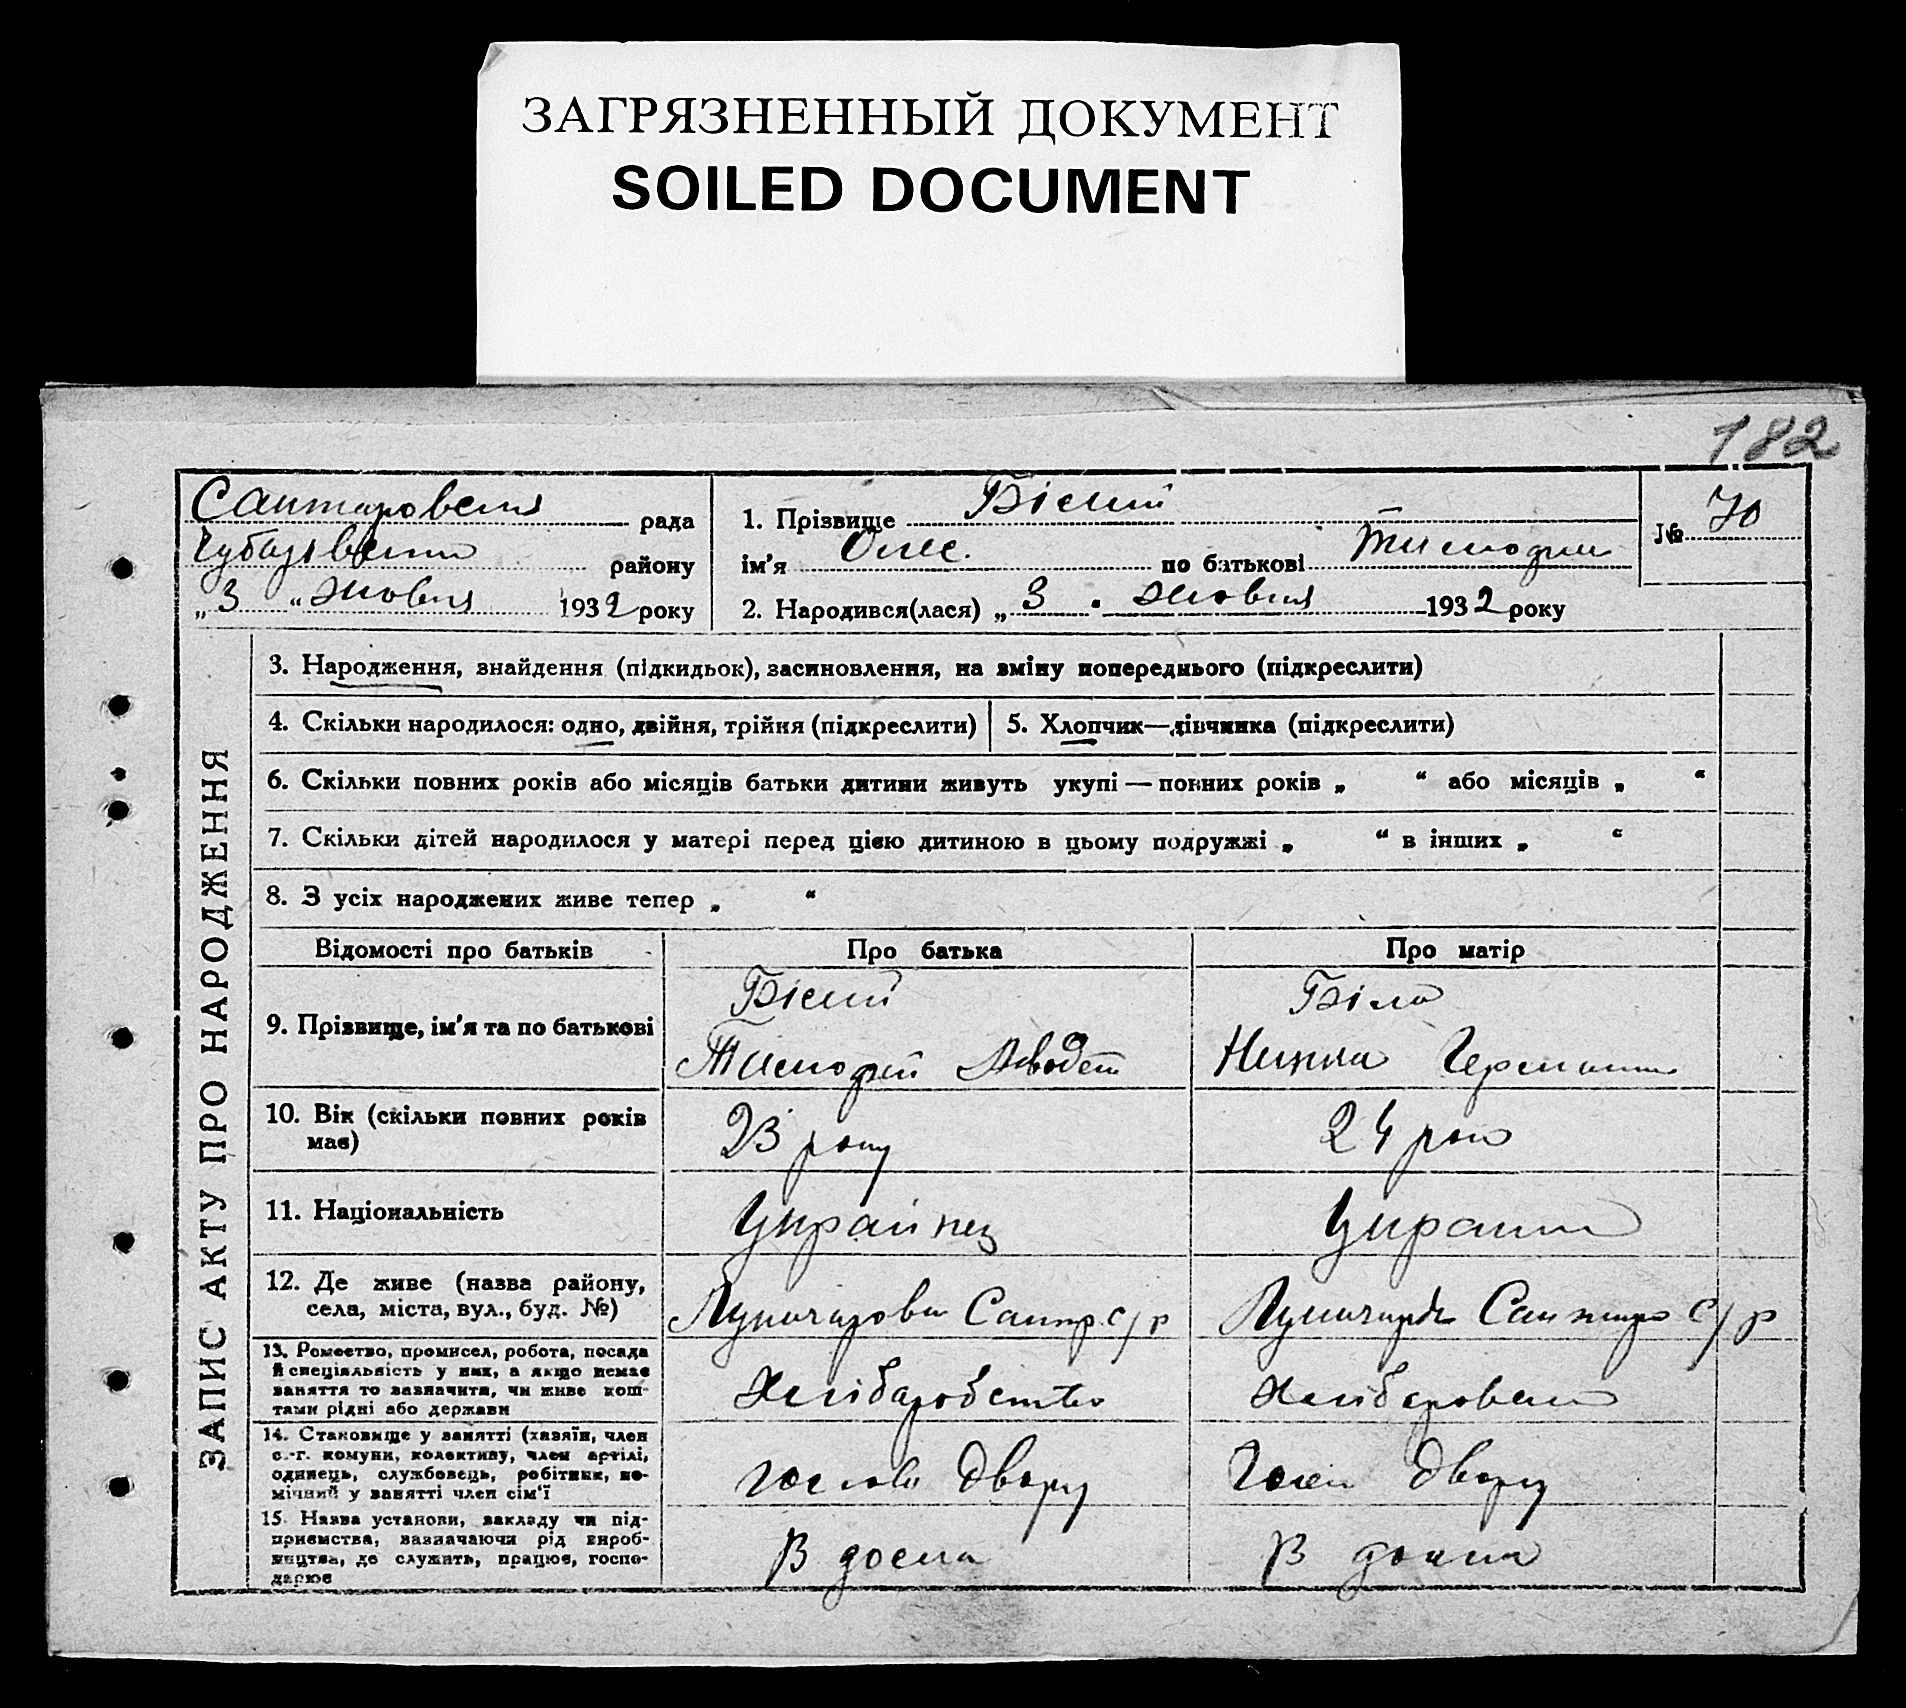 ЗАГРЯЗНЕННЫЙ ДОКУМЕНТ
SOILED DOCUMENT
182
рада
району
„ 3 “ жовтня 1932 року
1. Прізвище Білий
ім'я по батькові
2. Народився(лася) „ 3 “ жовтня 1932 року
№ 70
ЗАПИС АКТУ ПРО НАРОДЖЕННЯ
3. Народження, знайдення (підкидьок), засиновлення, на зміну попереднього (підкреслити)
4. Скільки народилося: одно, двійня, трійня (підкреслити)
5. Хлопчик—дівчинка (підкреслити)
6. Скільки повних років або місяців батьки дитини живуть укупі — повних років „ “ або місяців „ “
7. Скільки дітей народилося у матері перед цією дитиною в цьому подружжі „ “ в інших „ “
8. З усіх народжених живе тепер „ “
Відомості про батьків
Про батька
Про матір
9. Прізвище, ім'я та по батькові
Білий
Тимофій
Біла
10. Вік (скільки повних років
має)
23 року
24 рок
11. Національність
Українец
12. Де живе (назва району,
села, міста, вул., буд. №)
с/р
с/р
13. Ремество, промисел, робота, посада
й спеціяльність у них, а якщо немає
заняття то зазначити, чи живе кош-
тами рідні або держави
Хліборобство
14. Становище у занятті (хазяїн, член
с.-г. комуни, колективу, член артілі,
одинець, службовець, робітник, по-
мічний у занятті член сім'ї
голова двору
Член двору
15. Назва установи, закладу чи під-
приємства, зазначаючи рід вироб-
ництва, де служить, працює, госпо-
дарює
В дома
В дома